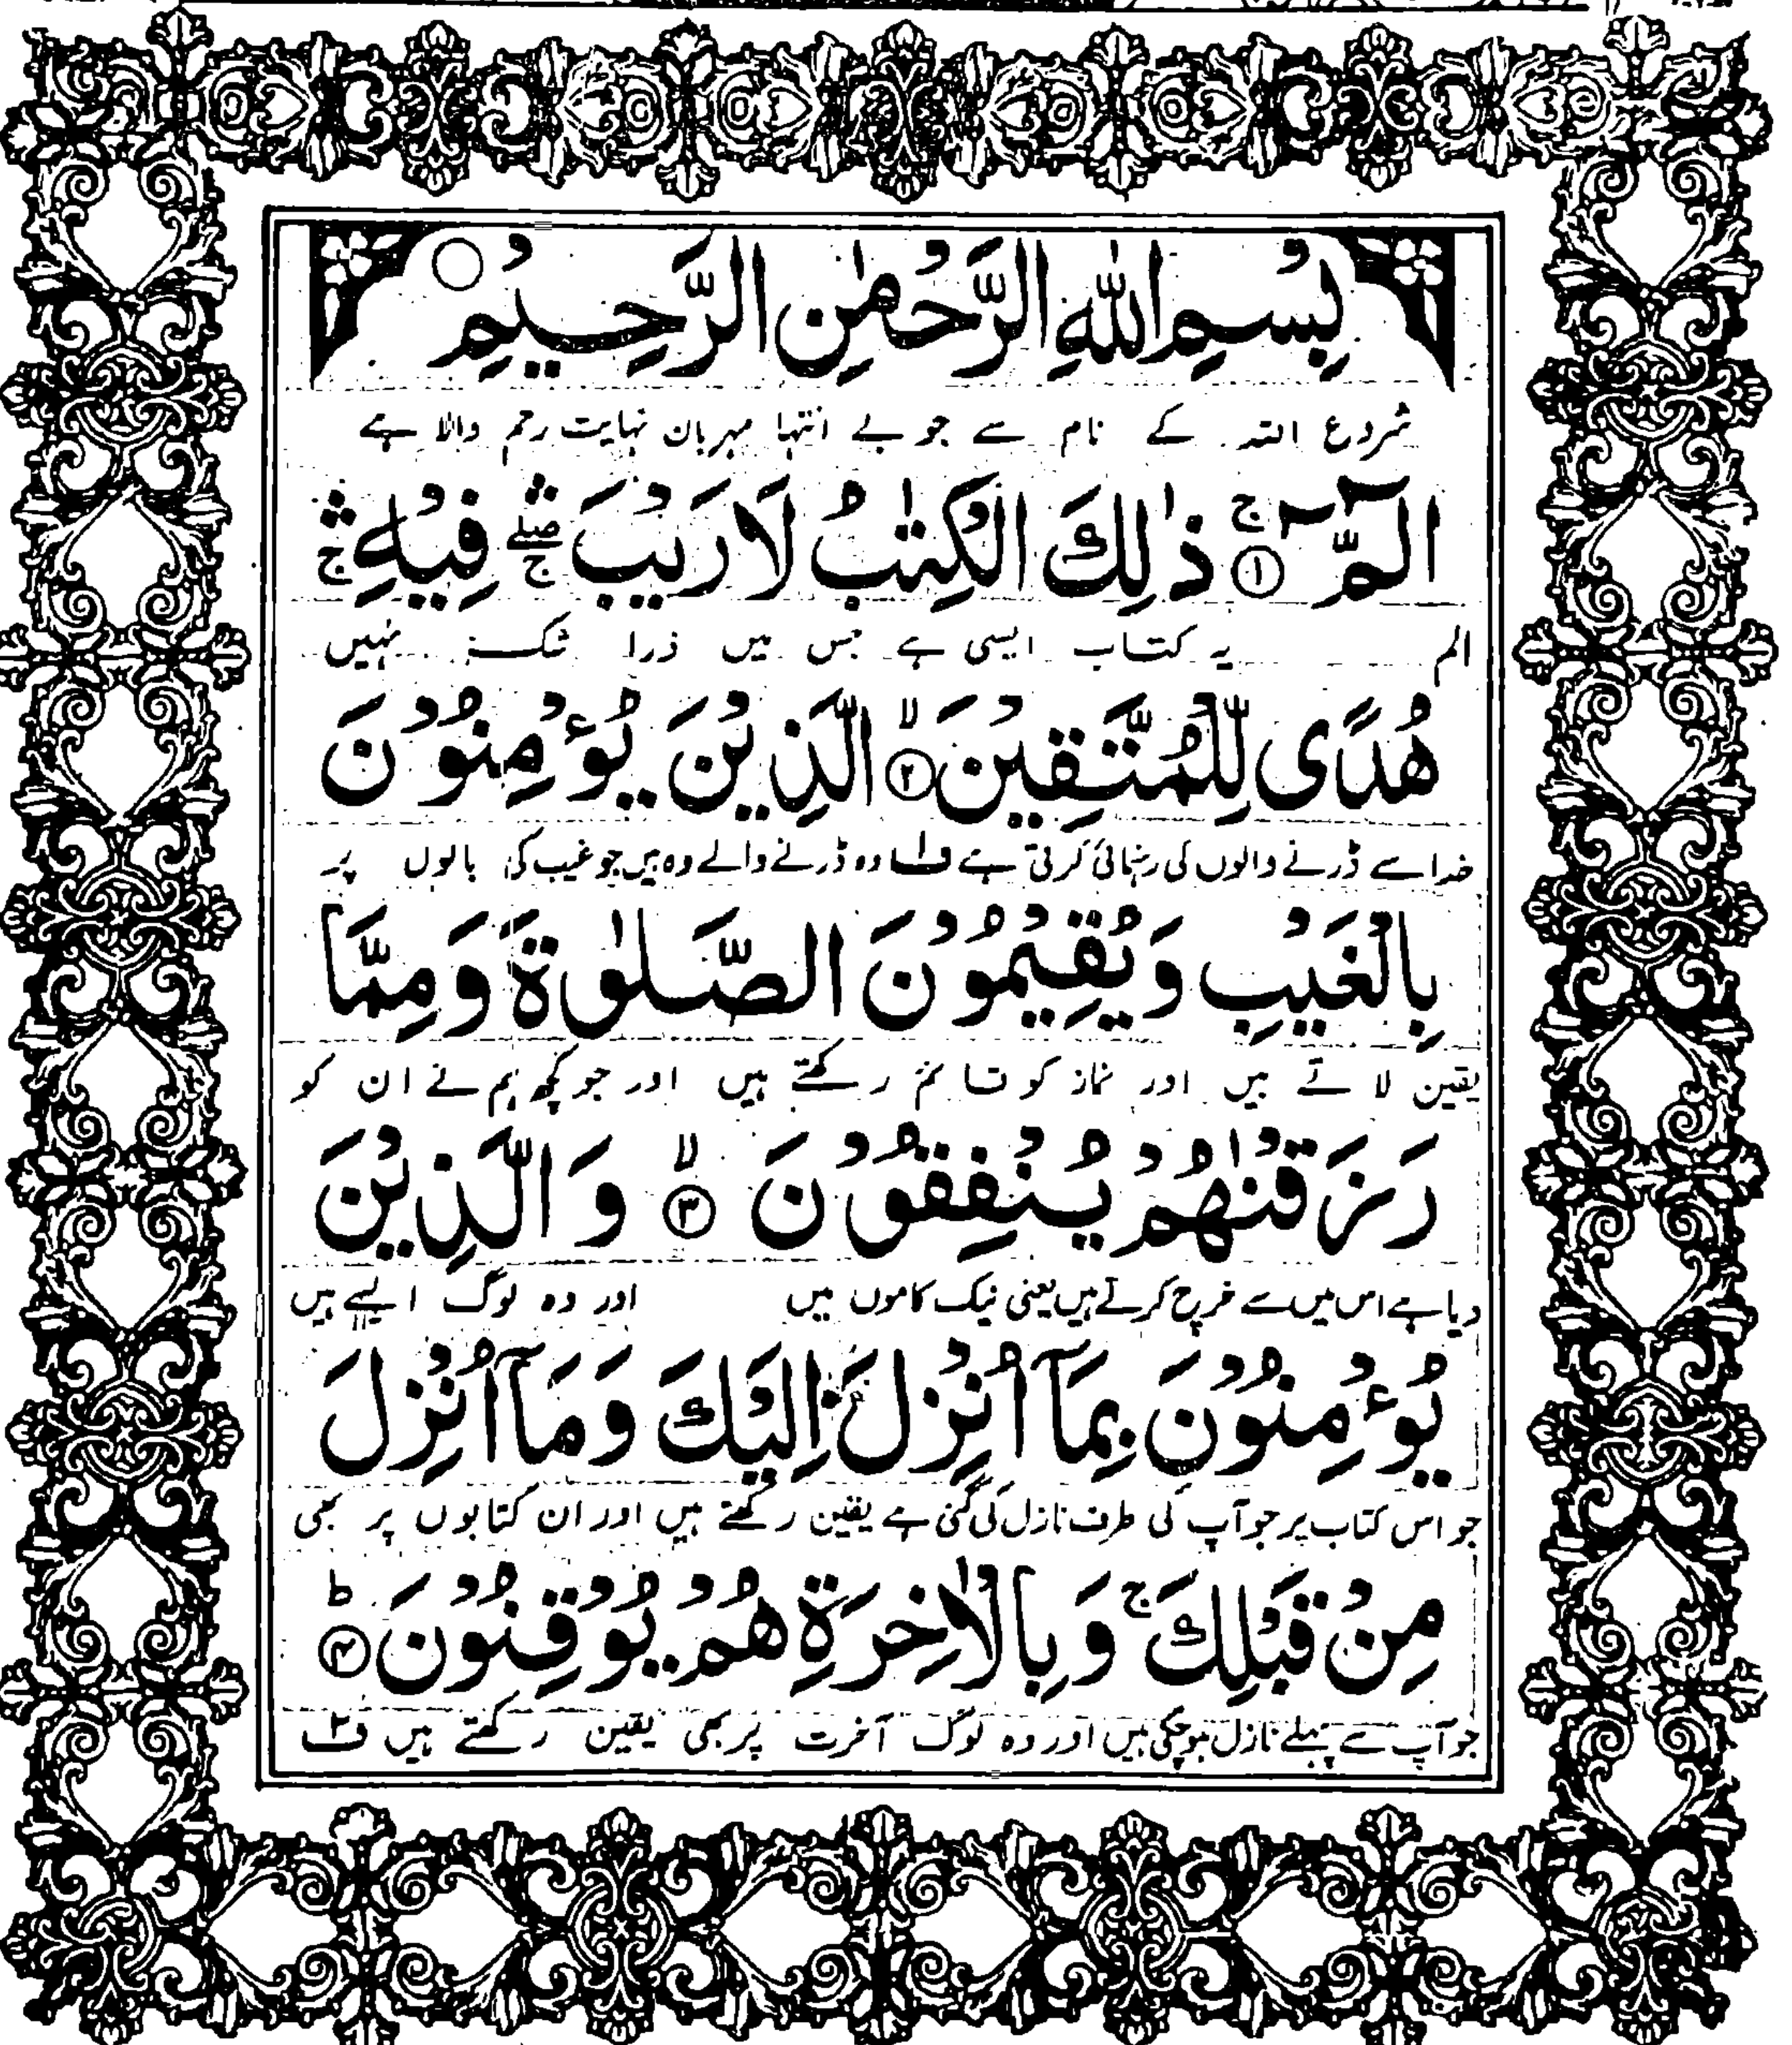 بِسْمِ اللّٰهِ الرَّحْمٰنِ الرَّحِيْمِ
شروع اللہ کے نام سے جو بے انتہا مہربان نہایت رحم والا ہے
الٓمّٓ ۚ ۝۱ ذٰلِكَ الْكِتٰبُ لَا رَيْبَ ۛۖۚ فِيْهِ ۛۚ
الم یہ کتاب ایسی ہے جس میں ذرا شک نہیں
هُدًى لِّلْمُتَّقِيْنَ ۙ ۝۲ الَّذِيْنَ يُؤْمِنُوْنَ
خدا سے ڈرنے والوں کی رہنمائی کرتی ہے ف۱ وہ ڈرنے والے وہ ہیں جو غیب کی باتوں پر
بِالْغَيْبِ وَيُقِيْمُوْنَ الصَّلٰوةَ وَمِمَّا
یقین لاتے ہیں اور نماز کو قائم رکھتے ہیں اور جو کچھ ہم نے ان کو
رَزَقْنٰهُمْ يُنْفِقُوْنَ ۙ ۝۳ وَالَّذِيْنَ
دیا ہے اس میں سے خرچ کرتے ہیں یعنی نیک کاموں میں اور وہ لوگ ایسے ہیں
يُؤْمِنُوْنَ بِمَآ اُنْزِلَ اِلَيْكَ وَمَآ اُنْزِلَ
جو اس کتاب پر جو آپ کی طرف نازل کی گئی ہے یقین رکھتے ہیں اور ان کتابوں پر بھی
مِنْ قَبْلِكَ ۚ وَبِالْاٰخِرَةِ هُمْ يُوْقِنُوْنَ ؕ ۝۴
جو آپ سے پہلے نازل ہو چکی ہیں اور وہ لوگ آخرت پر بھی یقین رکھتے ہیں ف۲